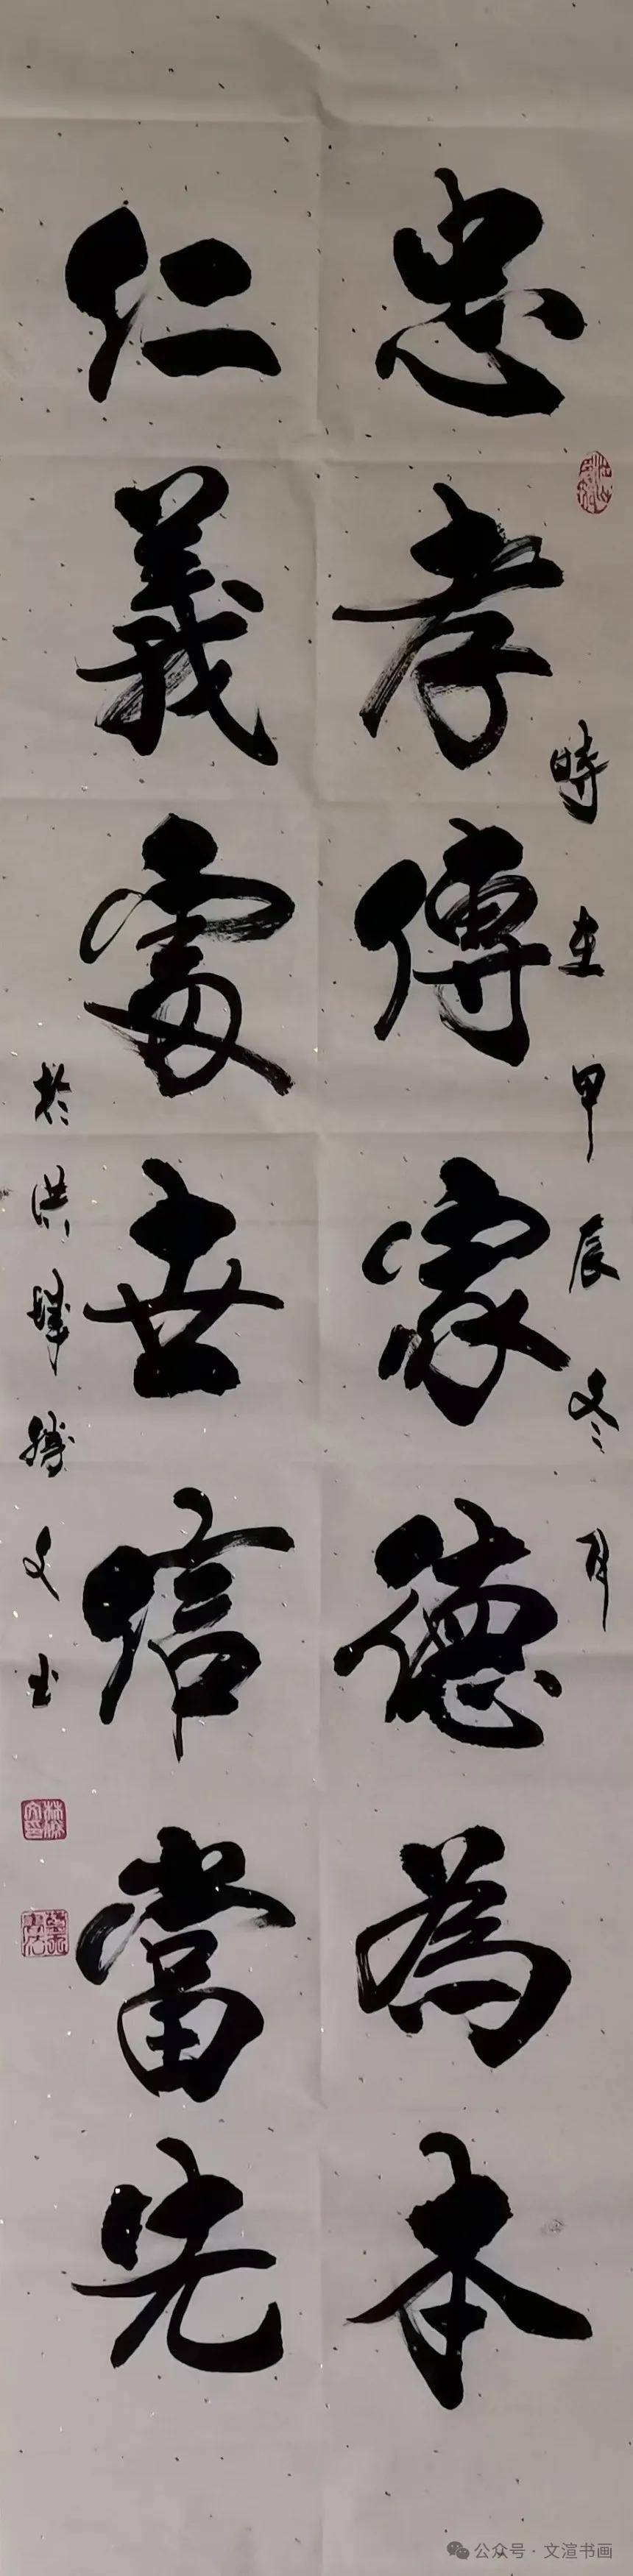 忠孝傳家德為本
仁義處世信當先
時在甲辰冬月
於洪城勝文书
公众号·文渲书画